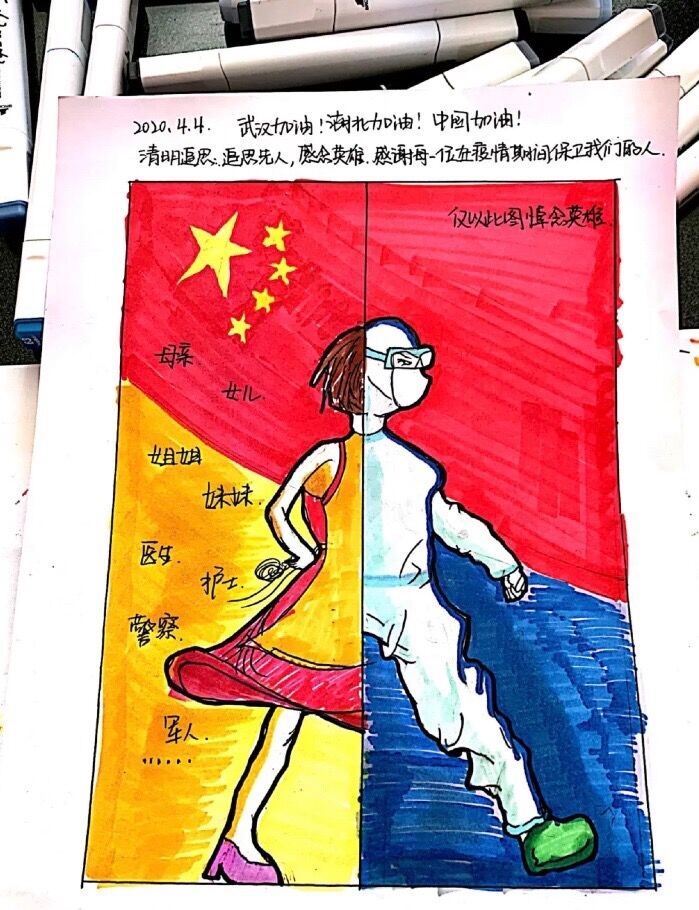 2020.4.4. 武汉加油！湖北加油！中国加油！
清明追思：追思先人，感念英雄。感谢每一位在疫情期间保卫我们的人。
仅以此图悼念英雄。
母亲
女儿
姐姐
妹妹.
医生
护士.
警察.
军人.
......